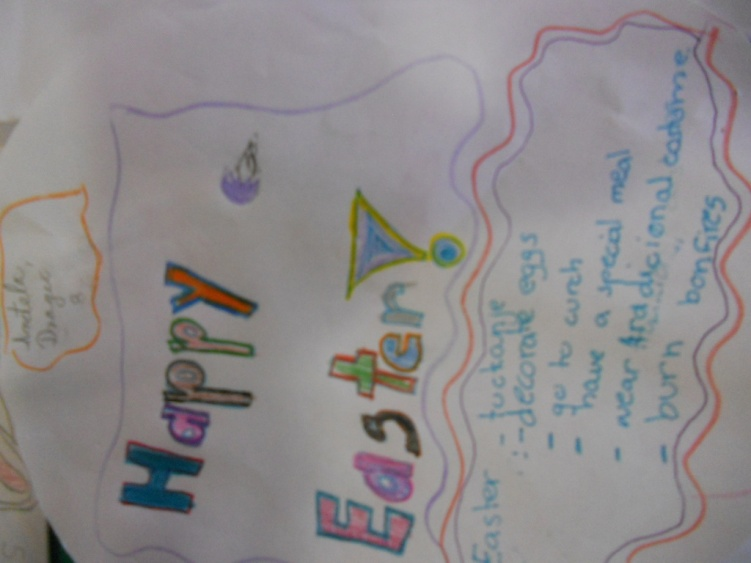 Happy
Easter
Easter - tuckanje
- decorate eggs
- go to curch
- have a special meal
- wear tradicional costume
- burn bonfires